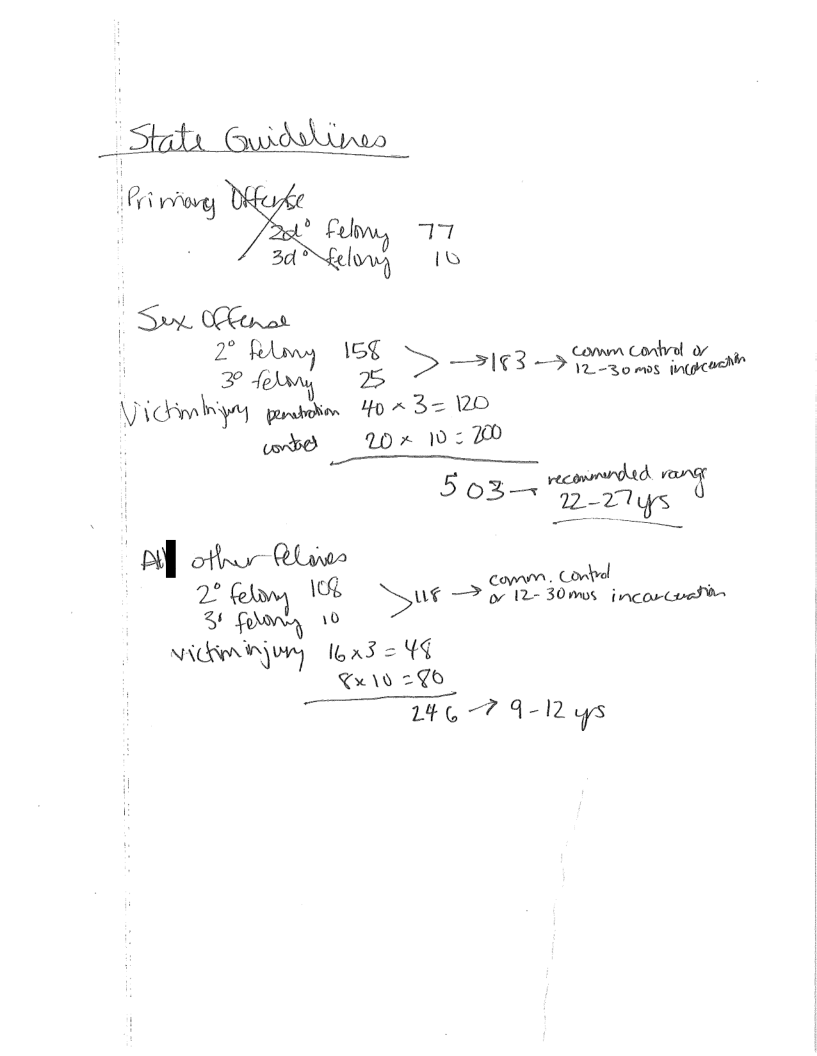 State Guidelines
Primary Offense
2d° felony 77
3d° felony 10
Sex Offense
2° felony 158
3° felony 25
→ 183 → comm control or
12-30 mos incarceration
Victim Injury penetration 40 x 3 = 120
contact 20 x 10 = 200
503 → recommended range
22-27 yrs
All other felonies
2° felony 108
3° felony 10
118 → comm. control
or 12-30 mos incarceration
victim injury 16 x 3 = 48
8 x 10 = 80
246 → 9-12 yrs